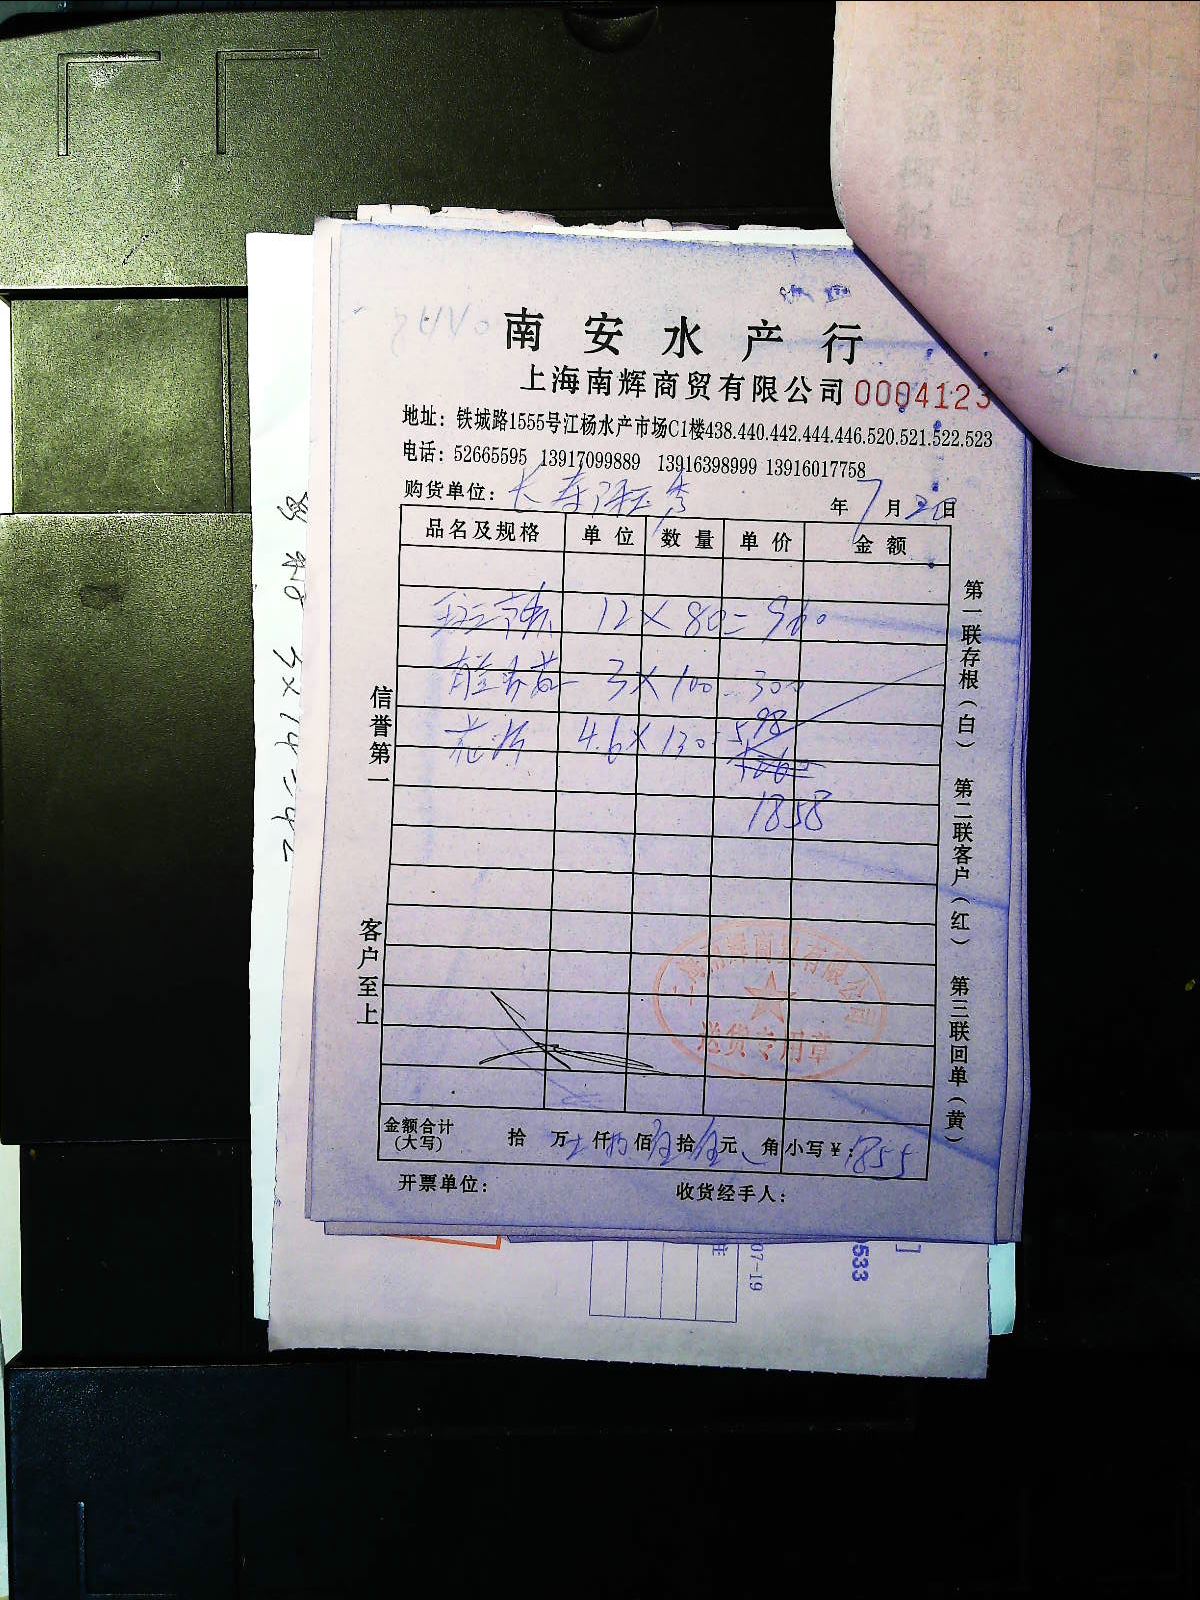 南安水产行
上海南辉商贸有限公司 0004123
地址：铁城路1555号江杨水产市场C1楼438.440.442.444.446.520.521.522.523
电话：52665595 13917099889 13916398999 13916017758
购货单位：长寿 年7月20日
品名及规格 单位 数量 单价 金额
12×80=960
3×100=300
4.6×130=598
1858
信誉第一
客户至上
第一联存根（白） 第二联客户（红） 第三联回单（黄）
上海南辉商贸有限公司
送货专用章
金额合计（大写） 拾 万 仟 佰 拾 元 角 小写￥：1855
开票单位： 收货经手人：
3×14=42
07-19
533